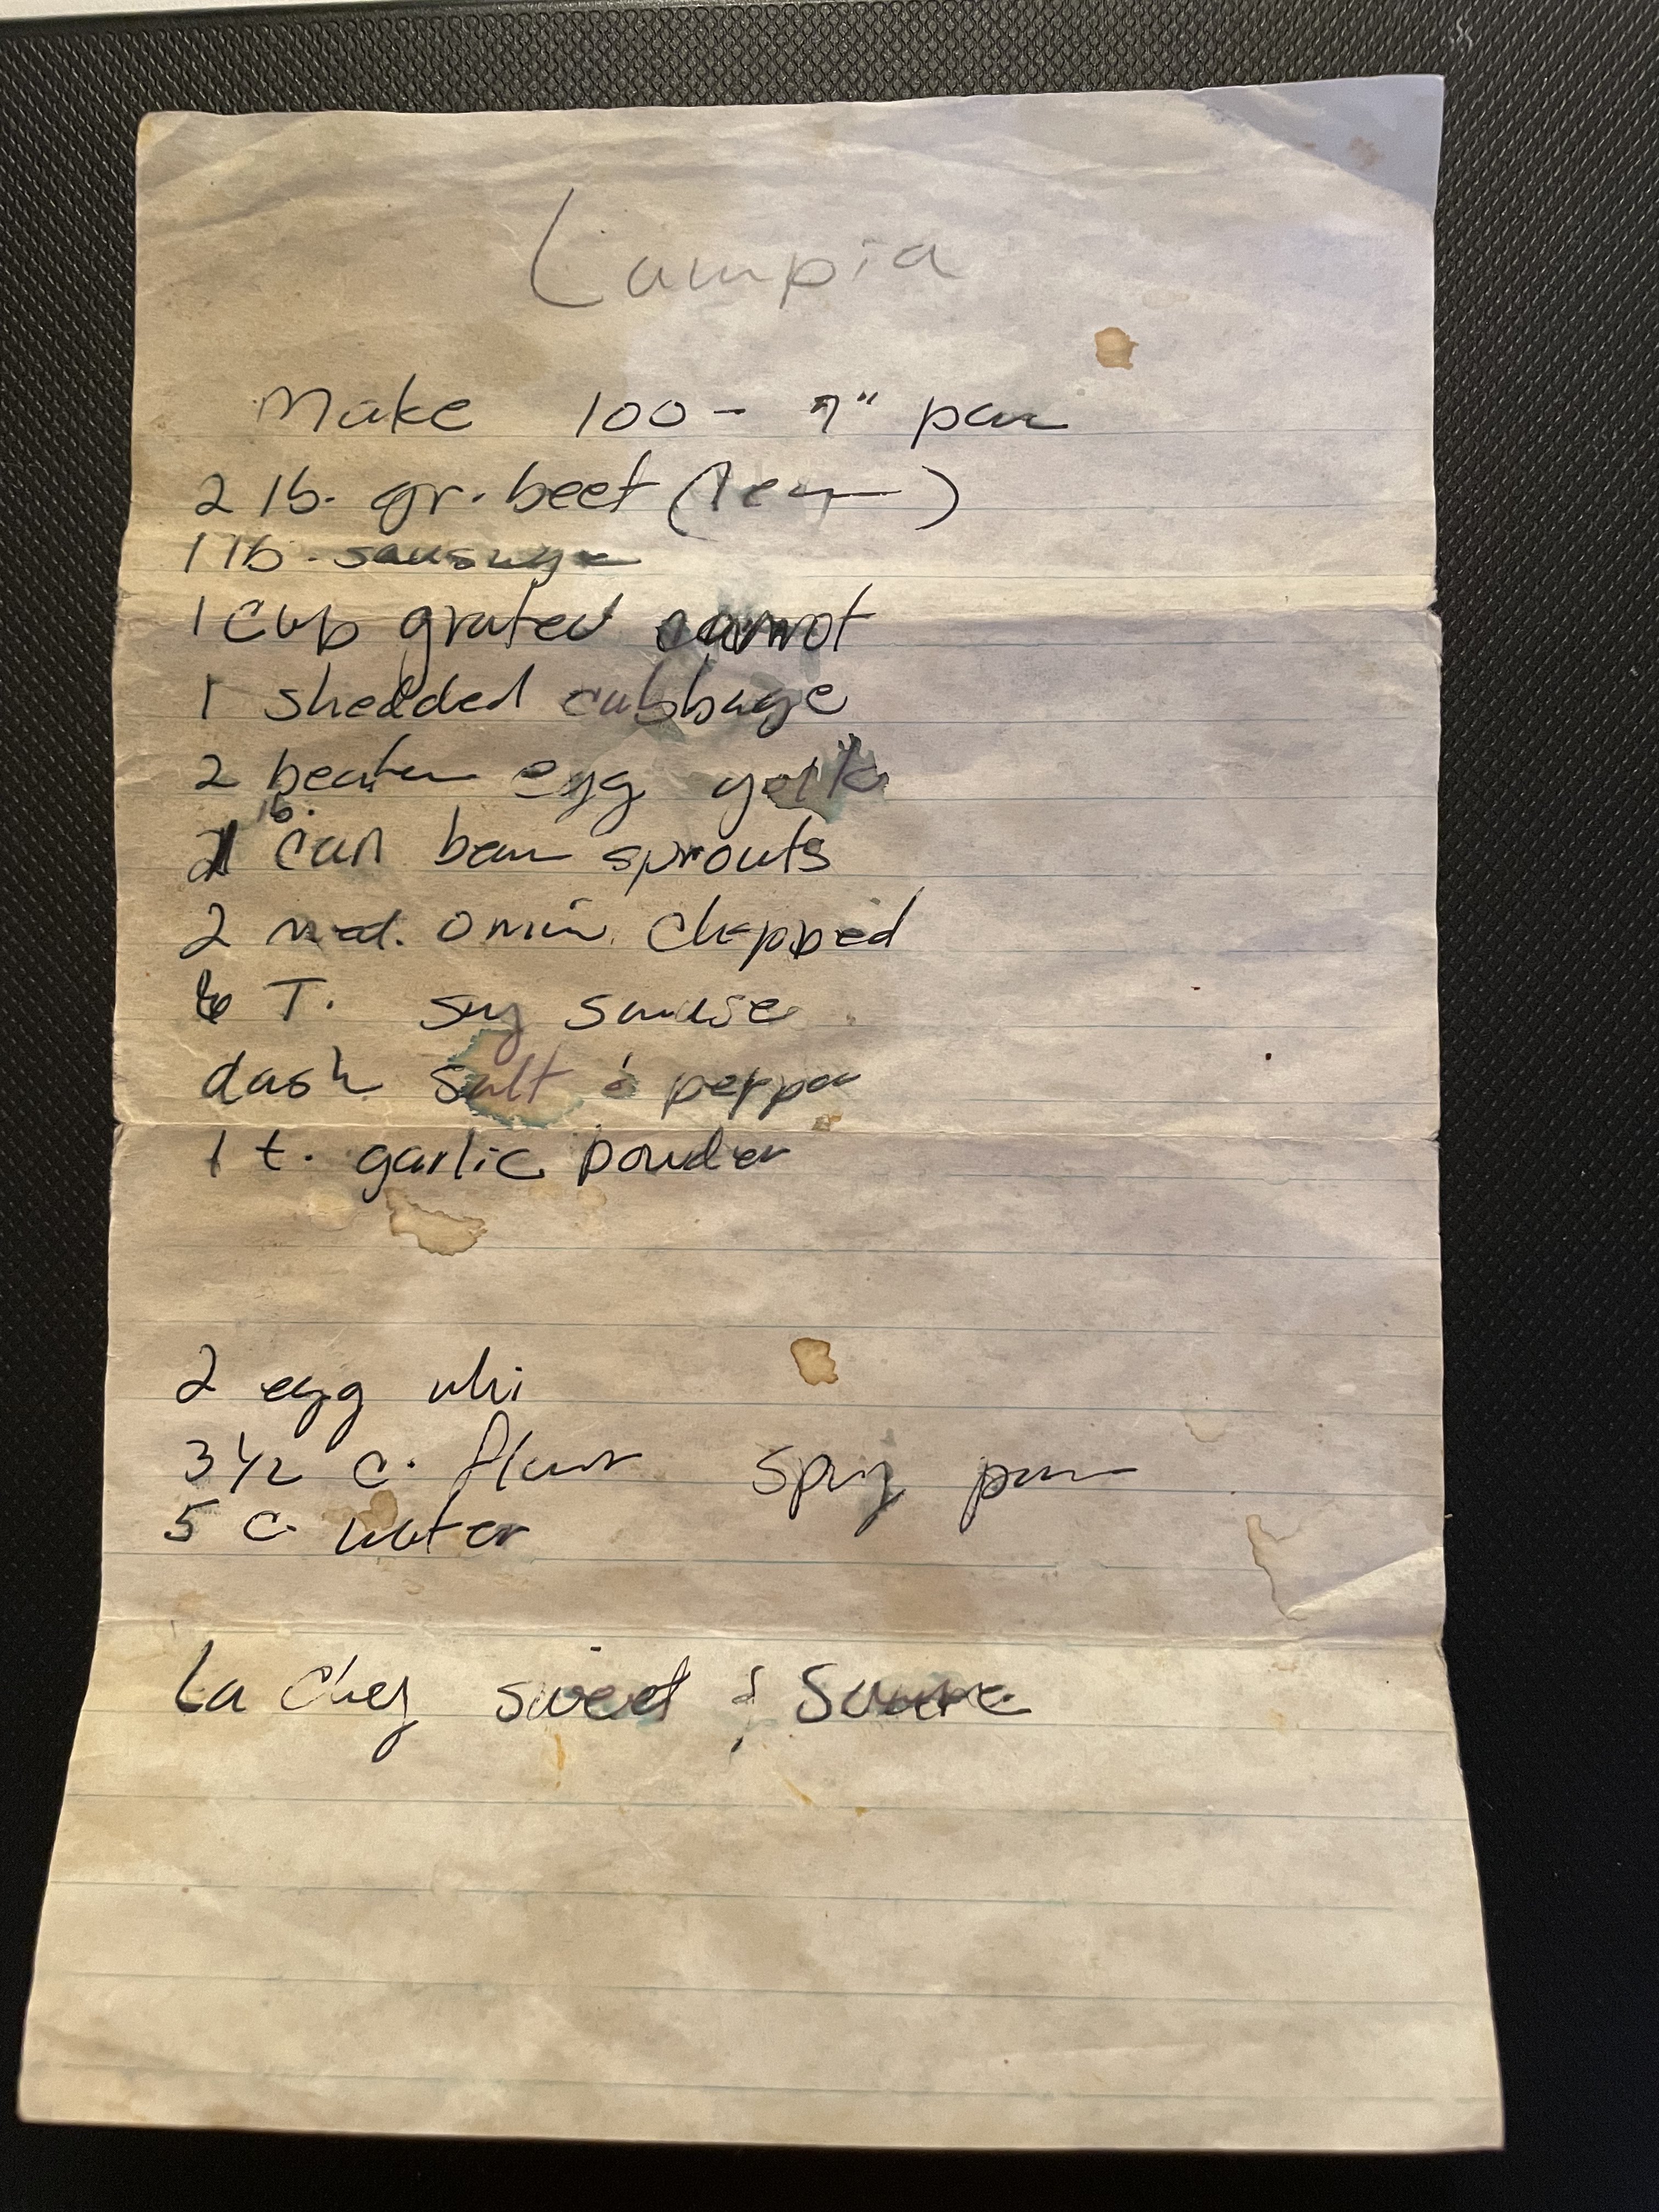 Lumpia
Make 100 - 7" pan
2 lb. gr. beef (lean)
1 lb. sausage
1 cup grated carrot
1 shedded cabbage
2 beaten egg yolk
lb.
can bean sprouts
2 med. onion chopped
6 T. soy sauce
dash salt & pepper
1 t. garlic powder
2 egg whi
3 1/2 c. flour spray pan
5 c. water
La Choy sweet & Soure